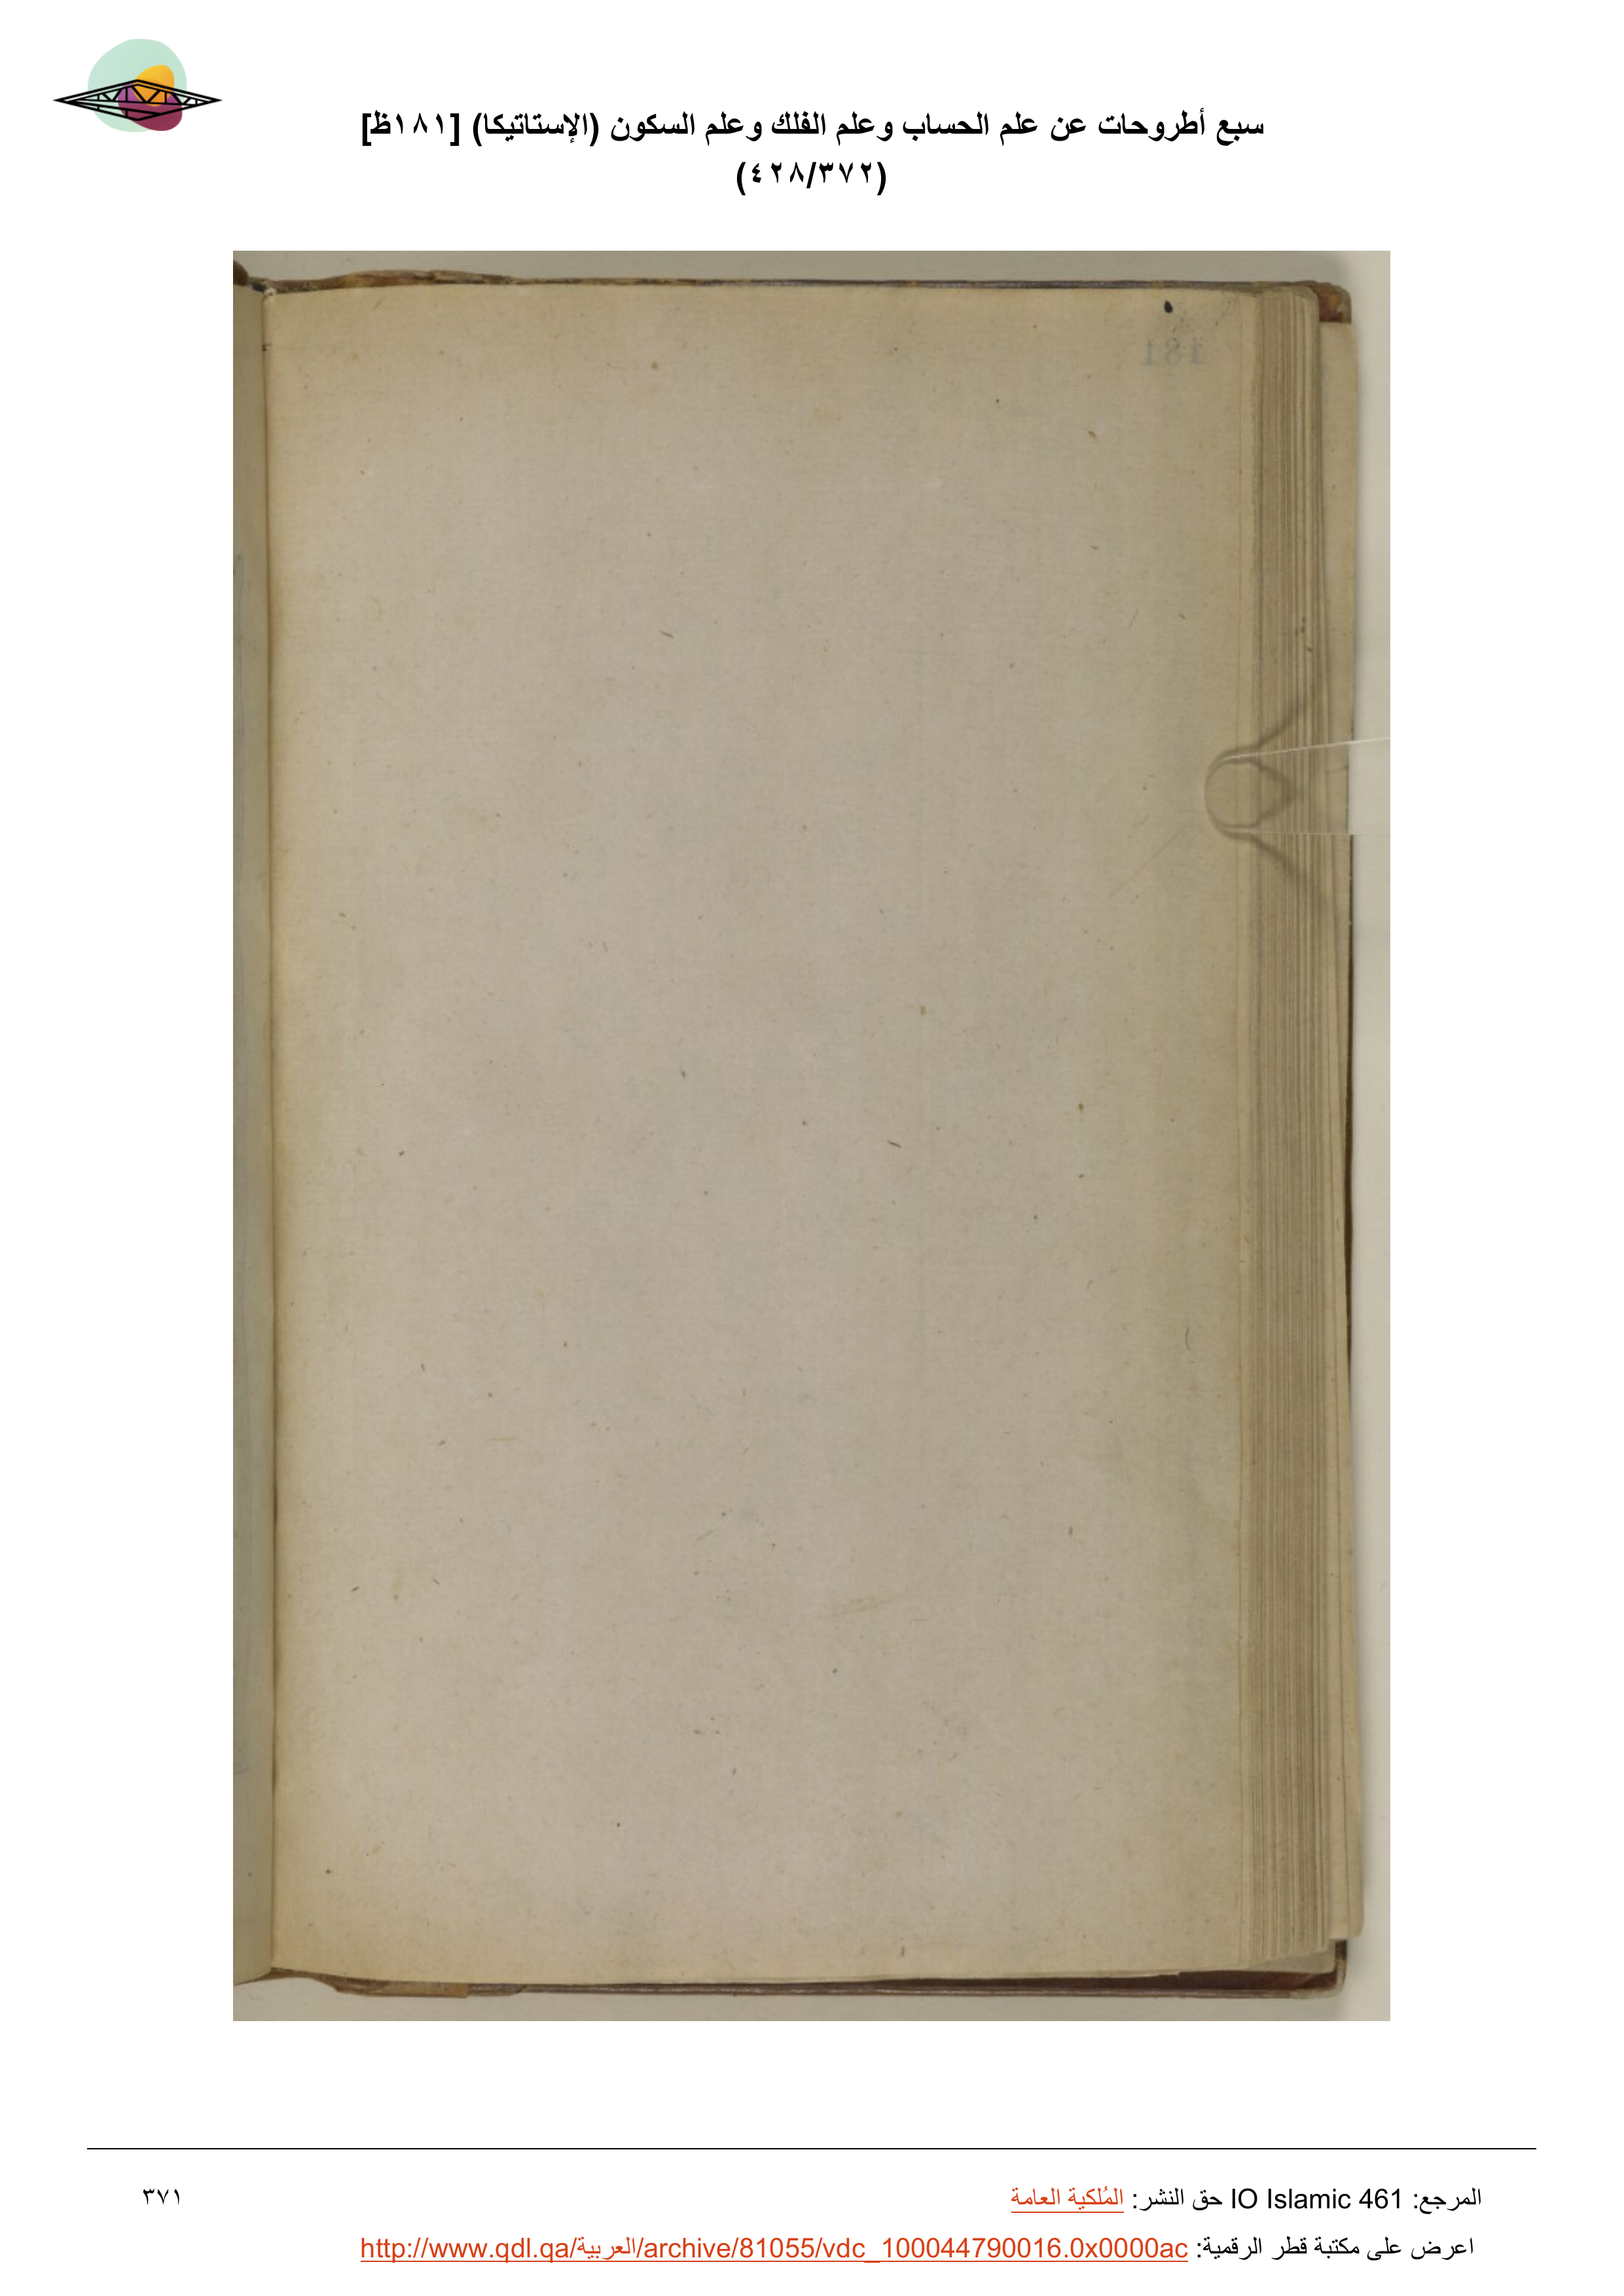 سبع أطروحات عن علم الحساب وعلم الفلك وعلم السكون (الإستاتيكا) [١٨١ظ]
(٤٢٨/٣٧٢)
181
المرجع: IO Islamic 461 حق النشر: المُلكية العامة
٣٧١
اعرض على مكتبة قطر الرقمية: http://www.qdl.qa/العربية/archive/81055/vdc_100044790016.0x0000ac